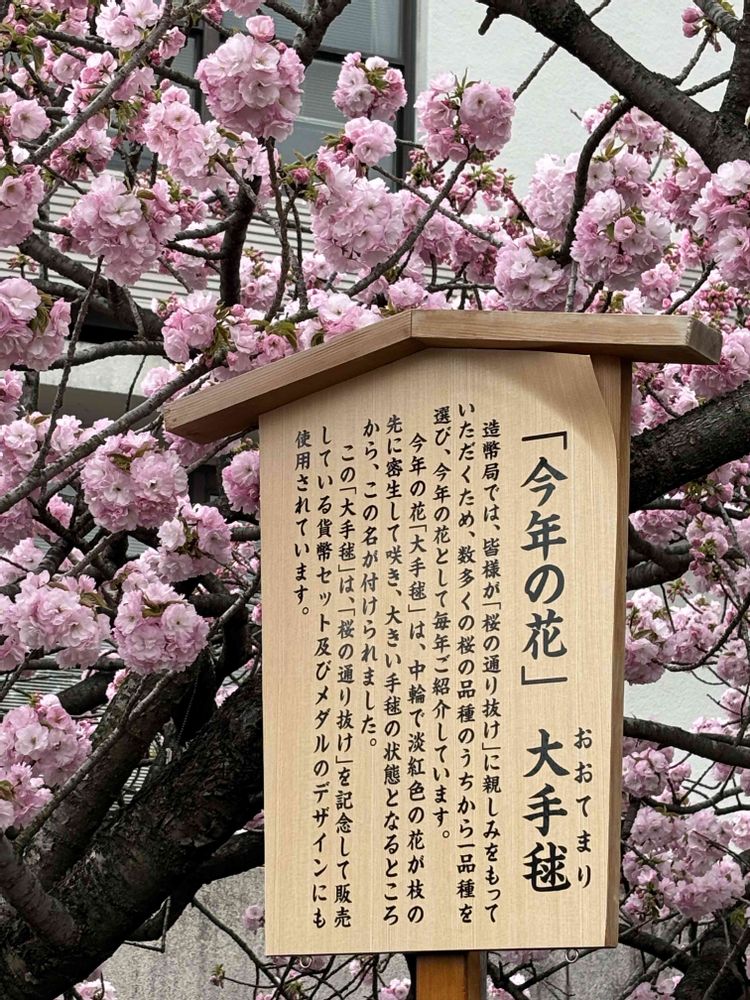 「今年の花」 大手毬
おおてまり
造幣局では、皆様が「桜の通り抜け」に親しみをもって
いただくため、数多くの桜の品種のうちから一品種を
選び、今年の花として毎年ご紹介しています。
今年の花「大手毬」は、中輪で淡紅色の花が枝の
先に密生して咲き、大きい手毬の状態となるところ
から、この名が付けられました。
この「大手毬」は、「桜の通り抜け」を記念して販売
している貨幣セット及びメダルのデザインにも
使用されています。